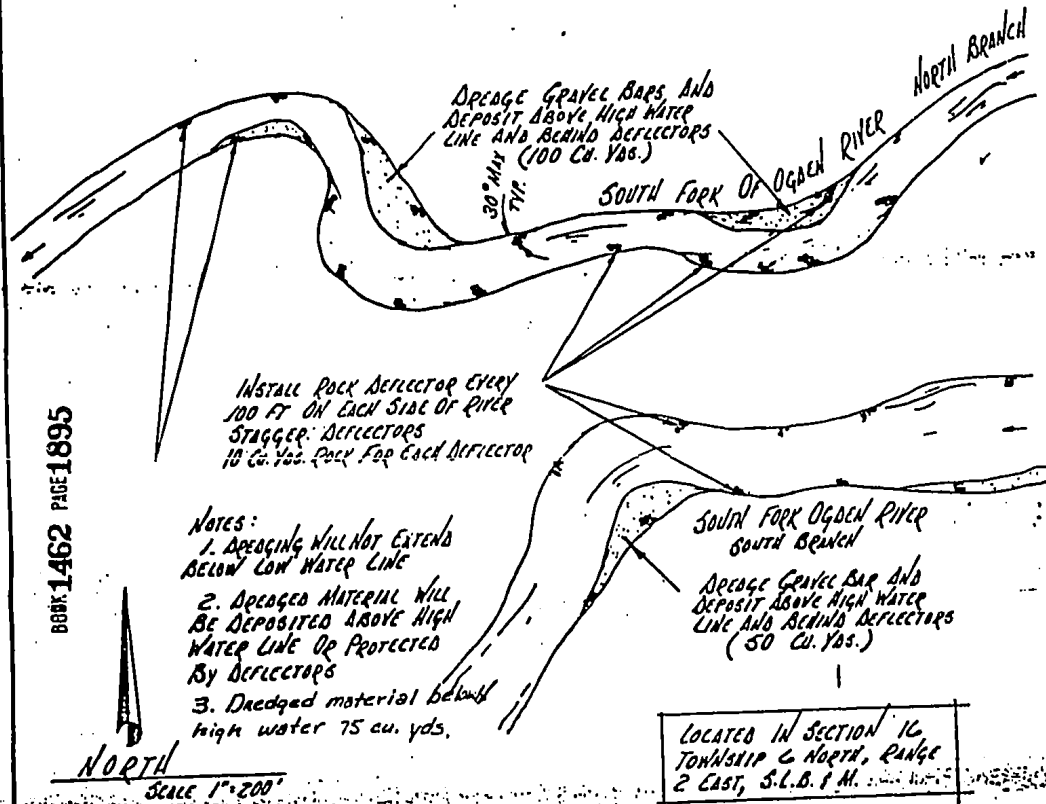 NORTH BRANCH
DREDGE GRAVEL BARS, AND
DEPOSIT ABOVE HIGH WATER
LINE AND BEHIND DEFLECTORS
(100 CU. YDS.)
30° MAX
TYP.
SOUTH FORK OF OGDEN RIVER
INSTALL ROCK DEFLECTOR EVERY
100 FT ON EACH SIDE OF RIVER
STAGGER DEFLECTORS
10 CU. YDS. ROCK FOR EACH DEFLECTOR
BOOK 1462 PAGE 1895
NOTES:
1. DREDGING WILL NOT EXTEND
BELOW LOW WATER LINE
2. DREDGED MATERIAL WILL
BE DEPOSITED ABOVE HIGH
WATER LINE OR PROTECTED
BY DEFLECTORS
3. Dredged material below
high water 75 cu. yds.
SOUTH FORK OGDEN RIVER
SOUTH BRANCH
DREDGE GRAVEL BAR AND
DEPOSIT ABOVE HIGH WATER
LINE AND BEHIND DEFLECTORS
(50 CU. YDS.)
NORTH
SCALE 1"=200'
LOCATED IN SECTION 16
TOWNSHIP 6 NORTH, RANGE
2 EAST, S.L.B. & M.